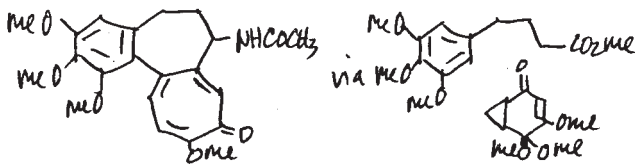 meO
meO
meO
NHCOCH3
O
OMe
via
meO
meO
meO
CO2me
O
OMe
meO
OMe